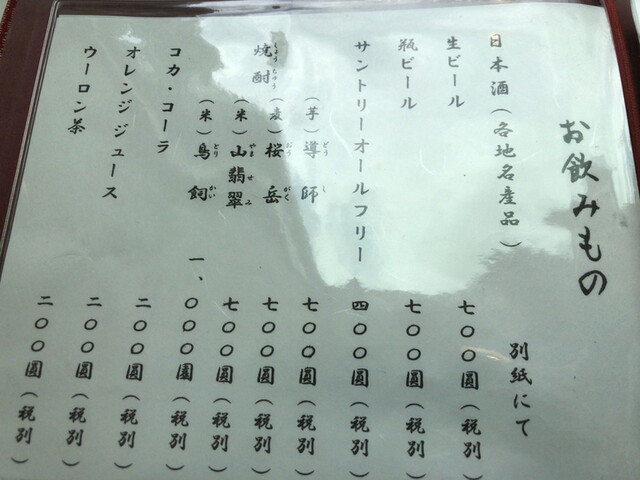 お飲みもの
日本酒（各地名産品） 別紙にて
生ビール 七〇〇圓（税別）
瓶ビール 七〇〇圓（税別）
サントリーオールフリー 四〇〇圓（税別）
焼酎 しょうちゅう
（芋）導師 どうし 七〇〇圓（税別）
（麦）桜岳 おうがく 七〇〇圓（税別）
（米）山翡翠 やませみ 七〇〇圓（税別）
（米）鳥飼 とりかい 一、〇〇〇圓（税別）
コカ・コーラ 二〇〇圓（税別）
オレンジジュース 二〇〇圓（税別）
ウーロン茶 二〇〇圓（税別）